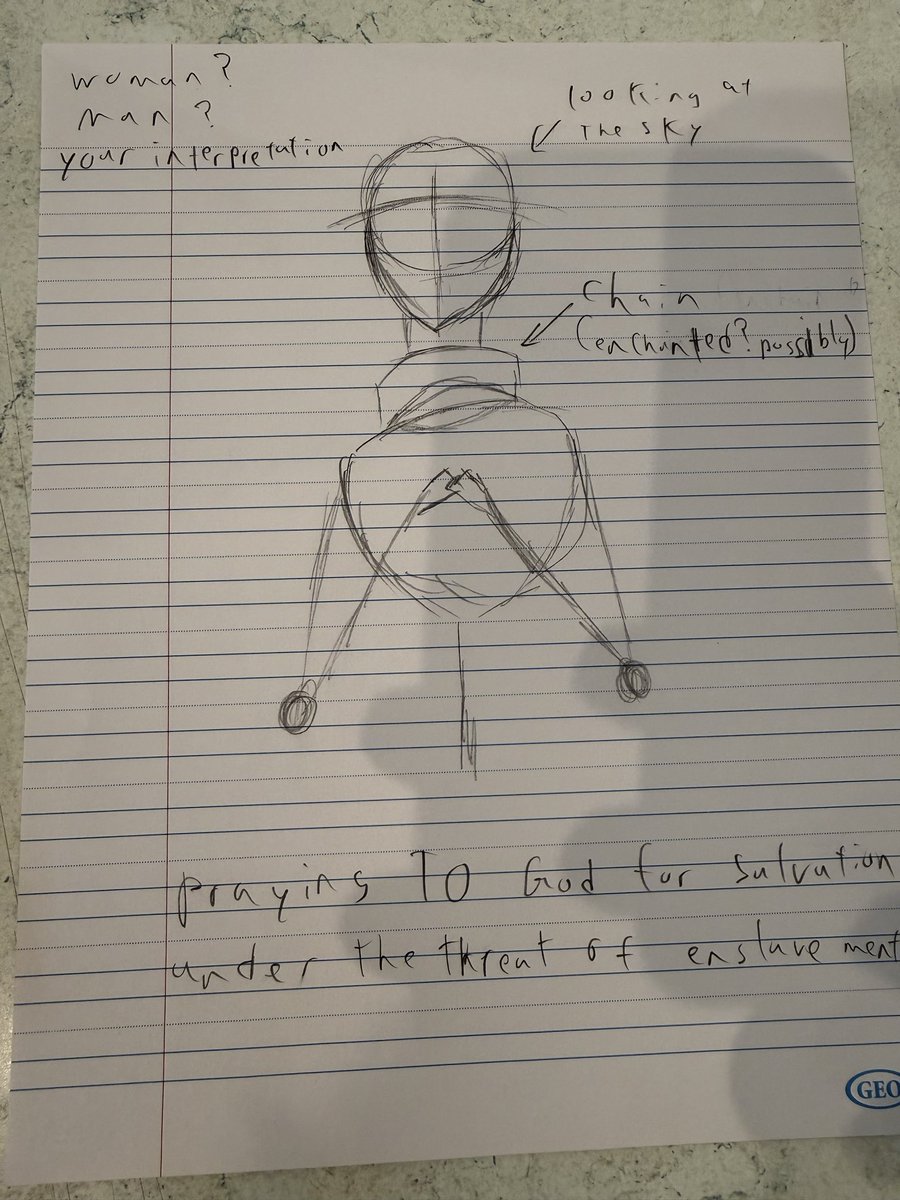 woman?
man?
your interpretation
looking at
the sky
chain
(enchanted? possibly)
praying To God for salvation
under the threat of enslavement
GEO